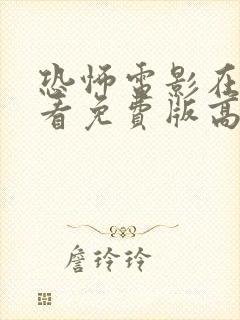 恐怖雷影在
看免費版高
詹玲玲